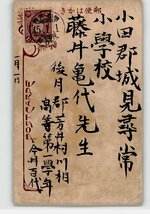 郵便はかき
小田郡城見尋常
小学校
藤井亀代先生
後月郡芳井村川相
高等第一学年
今井百代
一月一日